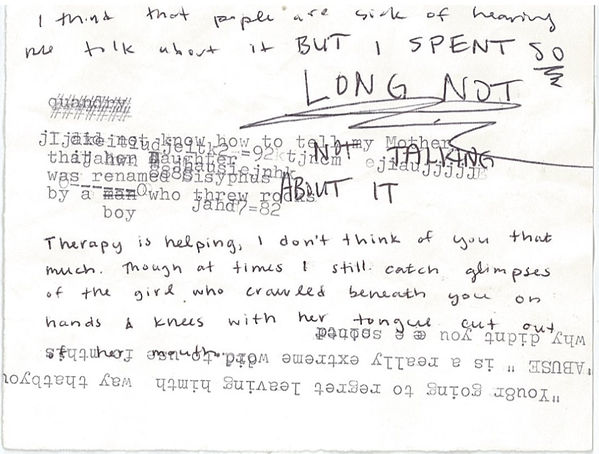 I think that people are sick of hearing
me talk about it BUT I SPENT SO
LONG NOT
NOT TALKING
ABOUT IT
quandry
I did not know how to tell my Mother
that her daughter
was renamed Sisyphus
by a man who threw rocks
boy
jahd7=82
Therapy is helping, I don't think of you that
much. Though at times I still catch glimpses
of the girl who crawled beneath you on
hands & knees with her tongue cut out
of her mouth.
why didnt you
"ABUSE " is a really extreme word to use
"You8r going to regret leaving himth way thatbyou